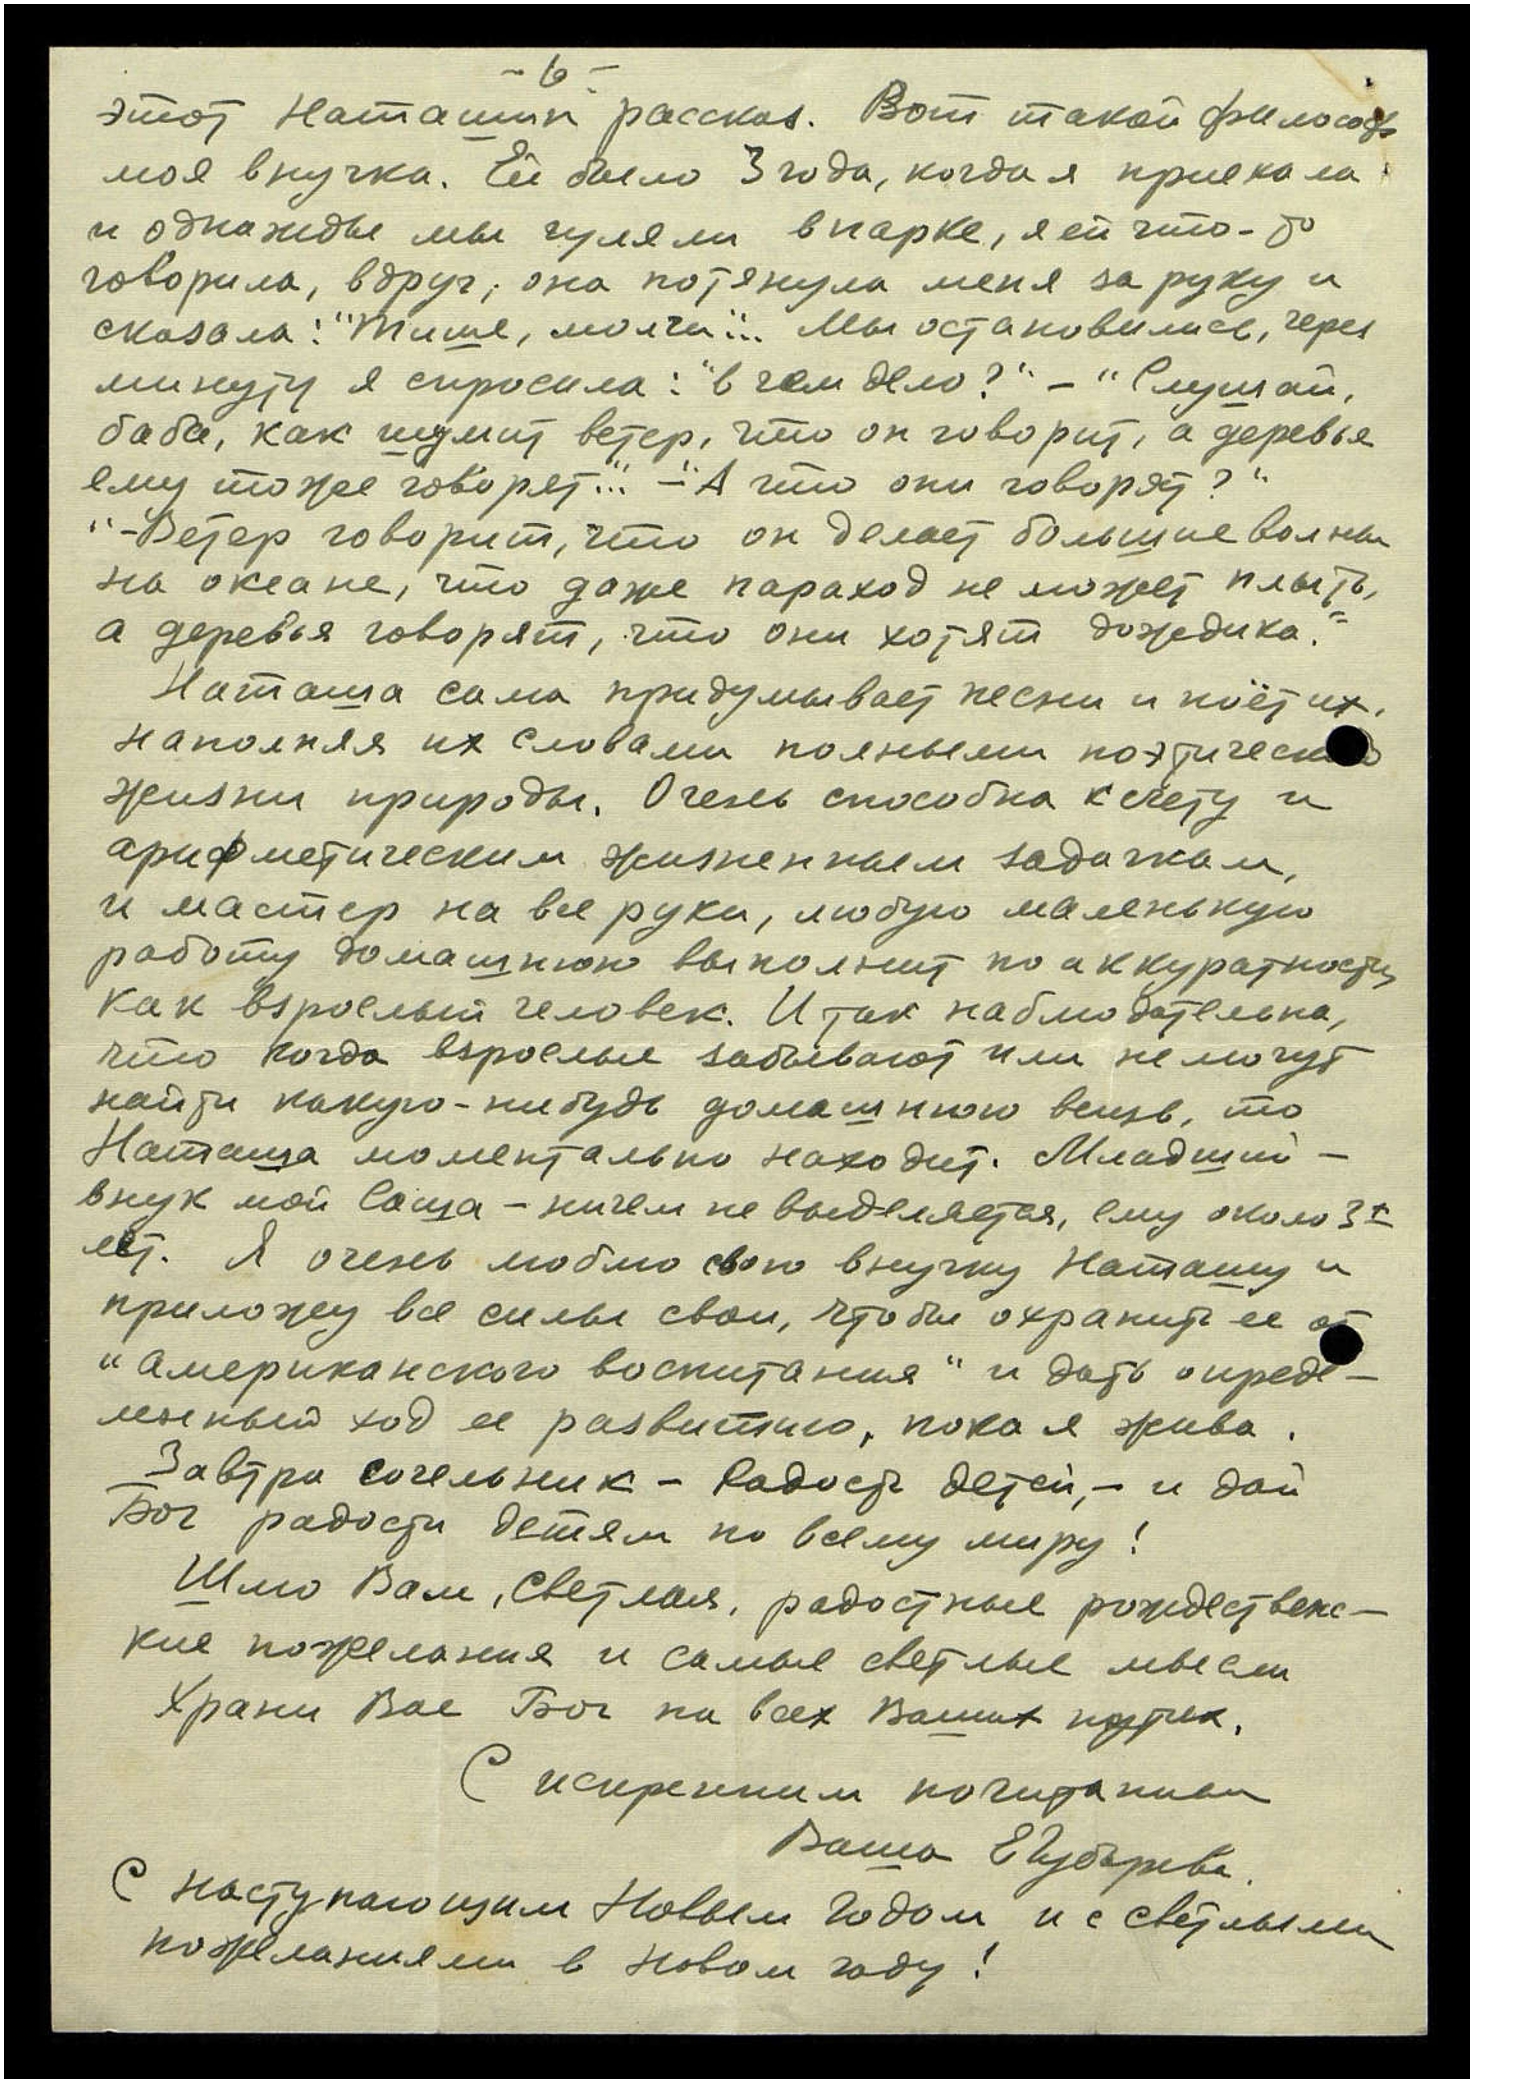 - 6 -
этот Наташин рассказ. Вот такой философ
моя внучка. Ей было 3 года, когда я приехала
и однажды мы гуляли в парке, я ей что-то
говорила, вдруг, она потянула меня за руку и
сказала: "Тише, молчи"... Мы остановились, через
минуту я спросила: "в чем дело?" - "Слушай,
баба, как шумит ветер, что он говорит, а деревья
ему тоже говорят"... - "А что они говорят?"
"- Ветер говорит, что он делает большие волны
на океане, что даже параход не может плыть,
а деревья говорят, что они хотят дождика."
Наташа сама придумывает песни и поёт их,
наполняя их словами полными поэтической
жизни природы. Очень способна к счету и
арифметическим жизненным задачкам,
и мастер на все руки, любую маленькую
работу домашнюю выполнит по аккуратности,
как взрослый человек. И так наблюдательна,
что когда взрослые забывают или не могут
найти какую-нибудь домашнюю вещь, то
Наташа моментально находит. Младший -
внук мой Саша - ничем не выделяется, ему около 3х
лет. Я очень люблю свою внучку Наташу и
приложу все силы свои, чтобы охранить ее от
"американского воспитания" и дать опреде-
ленный ход ее развитию, пока я жива.
Завтра сочельник - Радость детей, - и дай
Бог радости детям по всему миру!
Шлю Вам, Светлая, радостные рождественс-
кие пожелания и самые светлые мысли
Храни Вас Бог на всех Ваших путях.
С искренним почитанием
Ваша Е
С наступающим Новым Годом и с светлыми
пожеланиями в Новом году!